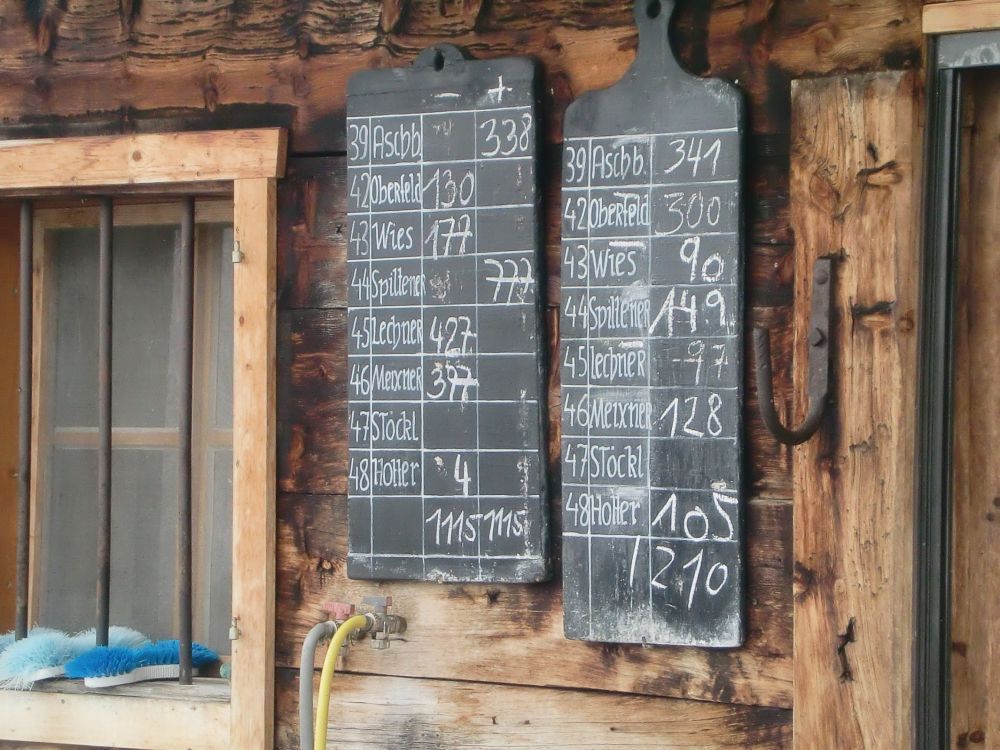 − +
39 Aschb. 338
42 Oberfeld 130
43 Wies 177
44 Spiltener 777
45 Lechner 427
46 Meixner 377
47 Stöckl
48 Hotter 4
1115 1115
39 Aschb. 341
42 Oberfeld 300
43 Wies 90
44 Spiltener 149
45 Lechner 97
46 Meixner 128
47 Stöckl
48 Hotter 105
1210